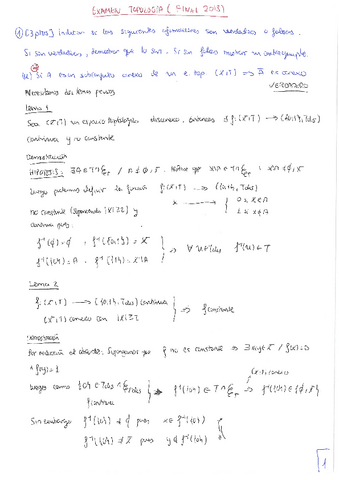 EXAMEN TOPOLOGÍA (FINAL 2013)
① [3 ptos] Indicar si las siguientes afirmaciones son verdaderas o falsas.
Si son verdaderas, demostrar que lo son. Si son falsas mostrar un contraejemplo.
a) Si A es un subconjunto conexo de un e. top. (X,T) ⟹ Ā es conexo
VERDADERO
Necesitamos dos lemas previos
Lema 1
Sea (X,T) un espacio topológico disconexo, entonces ∃ f: (X,T) → ({0,1}, Tdis)
continua y no constante
Demostración
HIPÓTESIS: ∃A ∈ T ∩ / A ≠ ∅, X. Nótese que X\A ∈ T ∩ : X\A ≠ ∅, X
Luego podemos definir la función f: (X,T) → ({0,1}, Tdis)
x → { 0 si x∈A
1 si x∉A
no constante (suponiendo |X|≥2) y
continua pues:
f⁻¹(∅) = ∅, f⁻¹({0,1}) = X
f⁻¹({0}) = A, f⁻¹({1}) = X\A
⟹ ∀ U∈Tdis f⁻¹(U) ∈ T
Lema 2
f: (X,T) → ({0,1}, Tdis) continua
(X,T) conexo con |X|≥2
⟹ f constante
Demostración
Por reducción al absurdo. Supongamos que f no es constante ⟹ ∃ x,y ∈ X / f(x)=0
∧ f(y)=1
Luego como {0} ∈ Tdis ∩
f continua
⟹ f⁻¹({0}) ∈ T ∩ ⟹ f⁻¹({0}) ∈ {∅, X}
Sin embargo f⁻¹({0}) ≠ ∅ pues x ∈ f⁻¹({0})
f⁻¹({0}) ≠ X pues y ∉ f⁻¹({0})
1